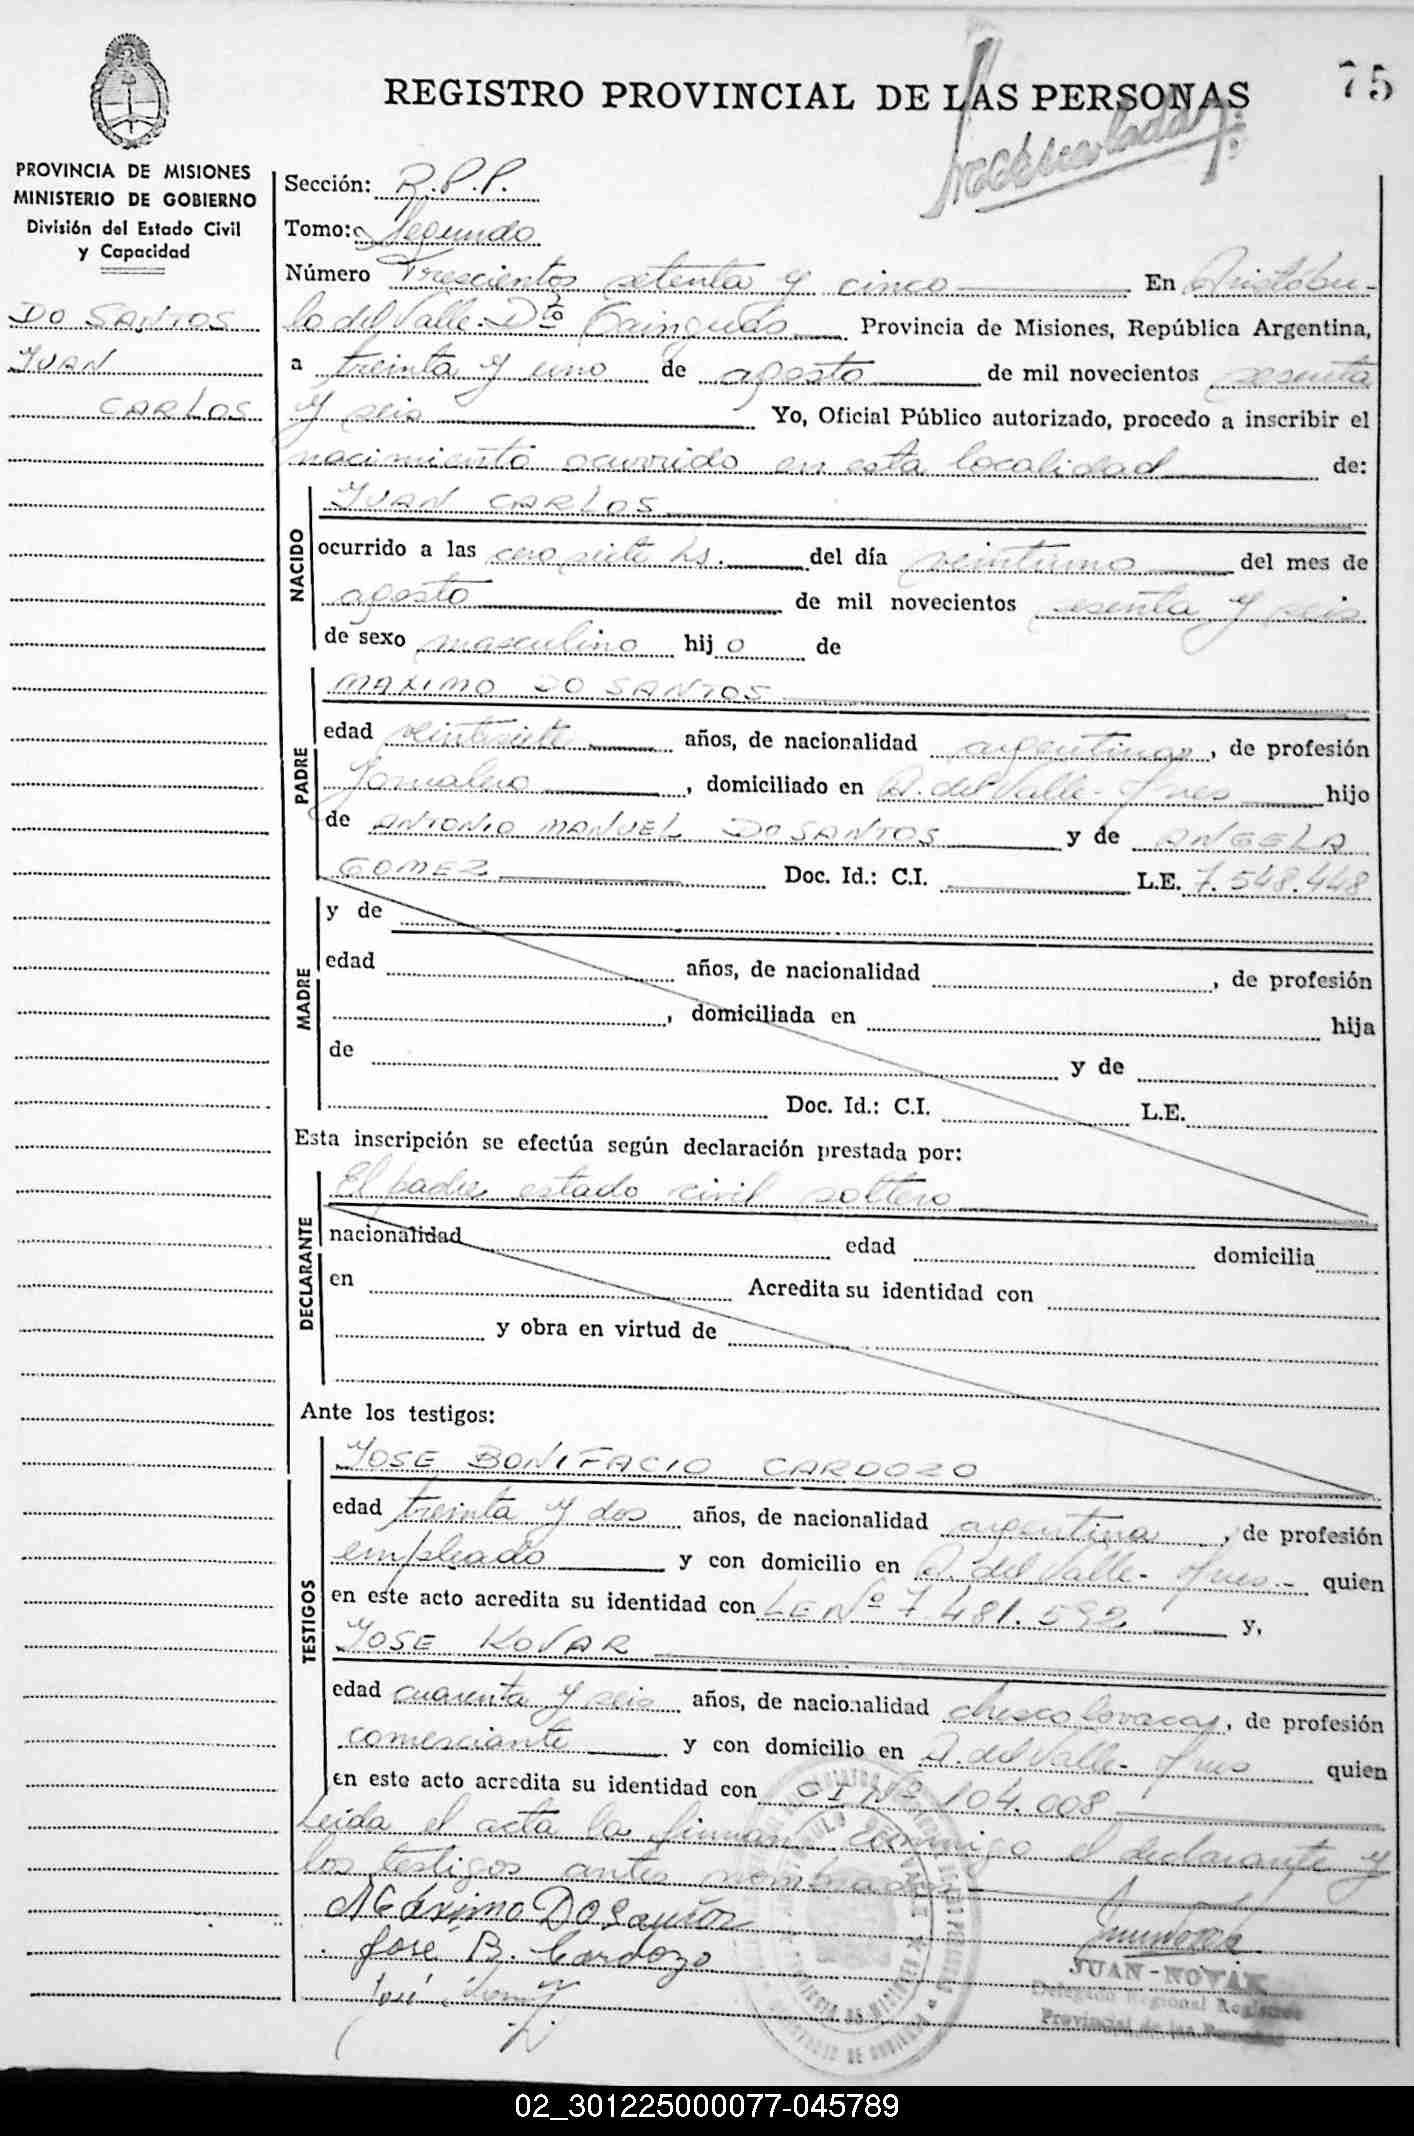 75
REGISTRO PROVINCIAL DE LAS PERSONAS
PROVINCIA DE MISIONES
MINISTERIO DE GOBIERNO
División del Estado Civil
y Capacidad
DO SANTOS
JUAN
CARLOS
Sección: R.P.P.
Tomo: Segundo
Número Trescientos setenta y cinco En Aristóbu-
lo del Valle. Dto Cainguás Provincia de Misiones, República Argentina,
a treinta y uno de agosto de mil novecientos sesenta
y seis Yo, Oficial Público autorizado, procedo a inscribir el
nacimiento ocurrido en esta localidad de:
NACIDO
JUAN CARLOS
ocurrido a las cero siete hs. del día veintiuno del mes de
agosto de mil novecientos sesenta y seis
de sexo masculino hijo de
PADRE
MAXIMO DO SANTOS
edad veintisiete años, de nacionalidad argentina, de profesión
Jornalero, domiciliado en A. del Valle- Mnes hijo
de ANTONIO MANUEL DO SANTOS y de ANGELA
GOMEZ Doc. Id.: C.I. L.E. 7.548.448
MADRE
y de
edad años, de nacionalidad , de profesión
, domiciliada en hija
de y de
Doc. Id.: C.I. L.E.
Esta inscripción se efectúa según declaración prestada por:
DECLARANTE
El padre estado civil soltero
nacionalidad edad domicilia
en Acredita su identidad con
y obra en virtud de
Ante los testigos:
TESTIGOS
JOSE BONIFACIO CARDOZO
edad treinta y dos años, de nacionalidad argentina, de profesión
empleado y con domicilio en A. del Valle- Mnes.- quien
en este acto acredita su identidad con LE Nº 7.481.592 y,
JOSE KOVAR
edad cuarenta y seis años, de nacionalidad , de profesión
comerciante y con domicilio en A. del Valle- Mnes quien
en este acto acredita su identidad con CI Nº 104.008
Leída el acta la firman conmigo el declarante y
los testigos antes nombrados
Máximo DO Santos
José B. Cardozo
José
JUAN-NOVAK
Delegado Regional Registro
Provincial de las Personas
02_301225000077-045789